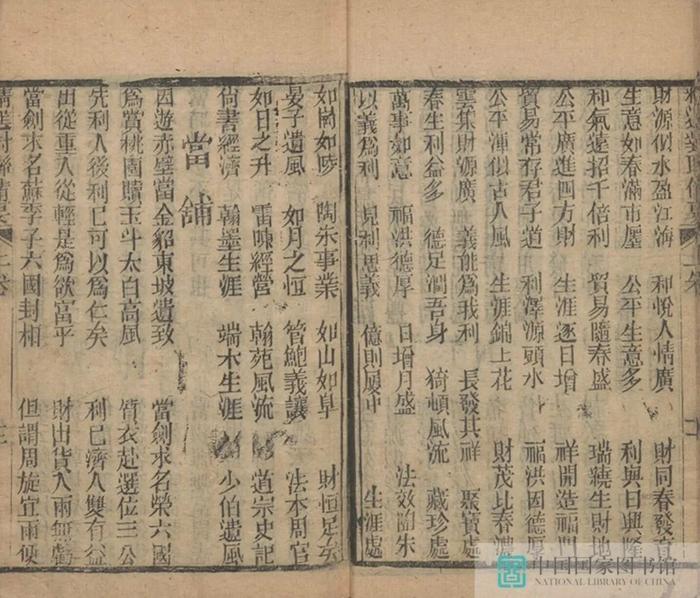 財源似水盈江海 利悅人情廣 財同春發育
生意如春滿市廛 公平生意多 利與日興隆
和氣遠招千倍利 貿易隨春盛 瑞繞生財地
公平廣進四方財 生涯逐日增 祥開造福門
貿易常存君子道 利澤源頭水 福洪因德厚
公平渾似古人風 生涯錦上花 財茂比春濃
雲集財源廣 義能為我利 長發其祥 聚寶處
春生利益多 德足潤吾身 猗頓風流 藏珍處
萬事如意 福洪德厚 日增月盛 法效陶朱
以義為利 見利思義 億則屢中 生涯處
如崗如陵 陶朱事業 如山如阜 財恒足矣
晏子遺風 如月之恒 管鮑義讓 法本周官
如日之升 雷陳經營 翰苑風流 道宗史記
尚書經濟 翰墨生涯 端木生涯 少伯遺風
當舖
因遊赤壁當金貂東坡遺致 當劍求名榮六國
為賞桃園贖玉斗太白高風 質衣赴選位三公
先利人後利已可以為仁矣 利已濟人雙有益
出從重入從輕是為欲富乎 財出貨入兩無虧
當劍求名蘇季子六國封相 但謂周旋宜兩便
精選對聯備要 上卷
中国国家图书馆
NATIONAL LIBRARY OF CHINA